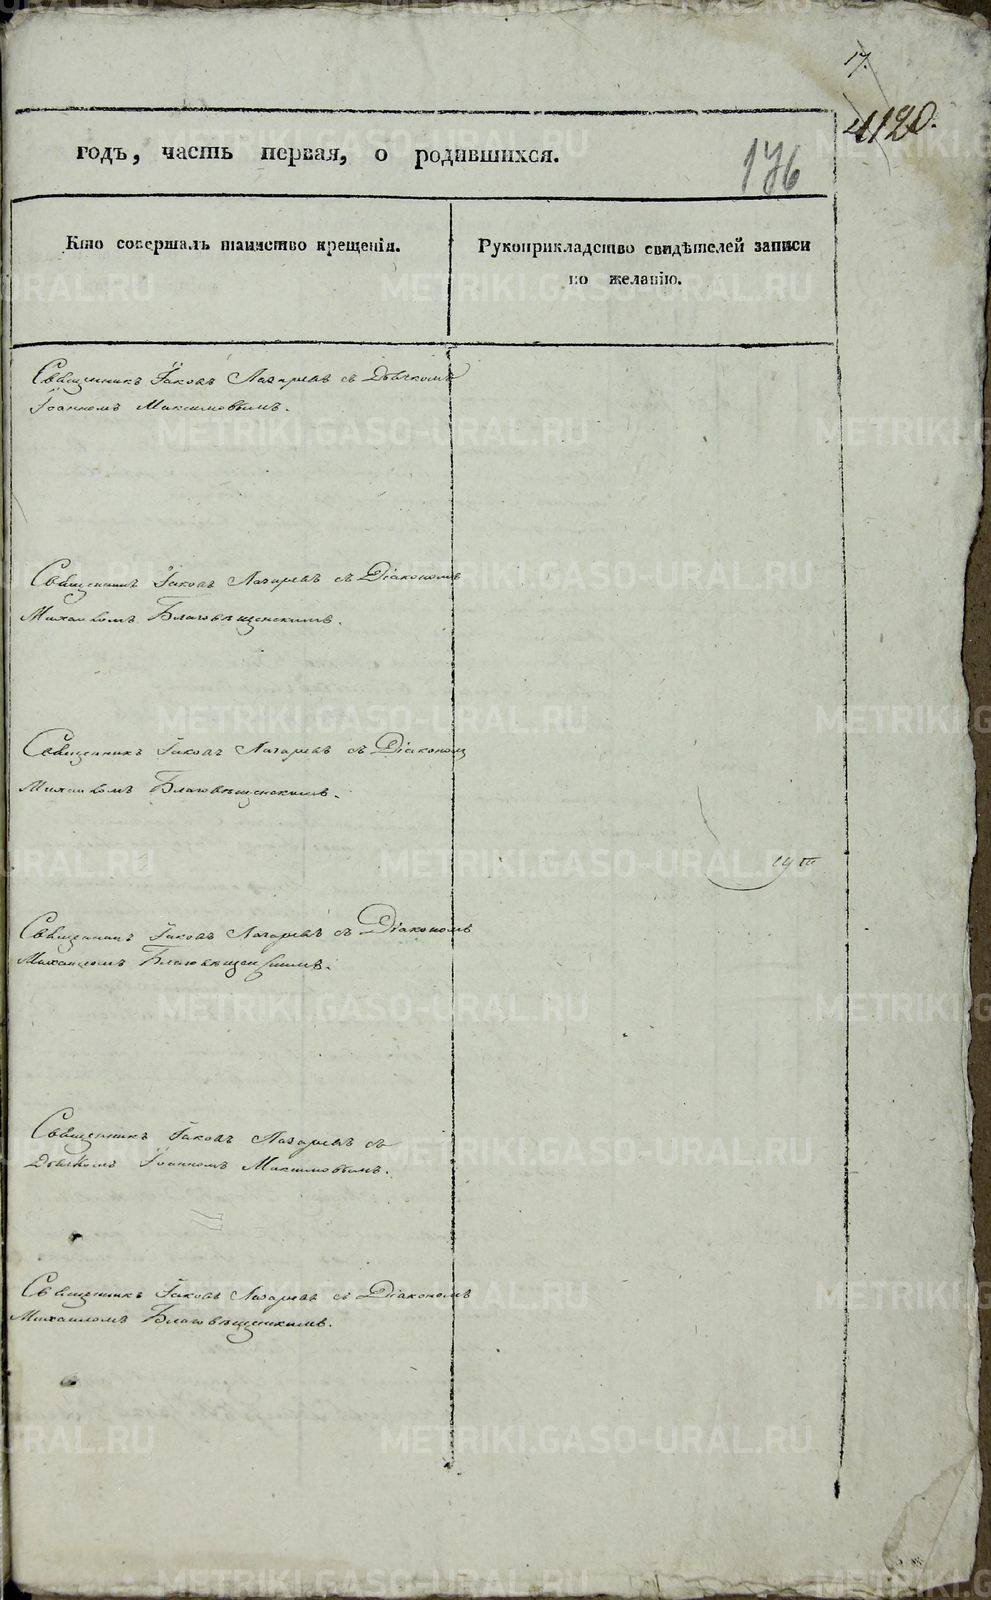 17.
4120.
годъ, часть первая, о родившихся.
176
Кто совершалъ таинство крещенія.
Рукоприкладство свидѣтелей записи
по желанію.
Священникъ Іаковъ Лазаревъ съ Дьячкомъ
Іоанномъ Максимовымъ.
Священникъ Іаковъ Лазаревъ съ Діакономъ
Михаиломъ Благовѣщенскимъ.
Священникъ Іаковъ Лазаревъ съ Діакономъ
Михаиломъ Благовѣщенскимъ.
Священникъ Іаковъ Лазаревъ съ Діакономъ
Михаиломъ Благовѣщенскимъ.
Священникъ Іаковъ Лазаревъ съ
Дьячкомъ Іоанномъ Максимовымъ.
Священникъ Іаковъ Лазаревъ съ Діакономъ
Михаиломъ Благовѣщенскимъ.
METRIKI.GASO-URAL.RU